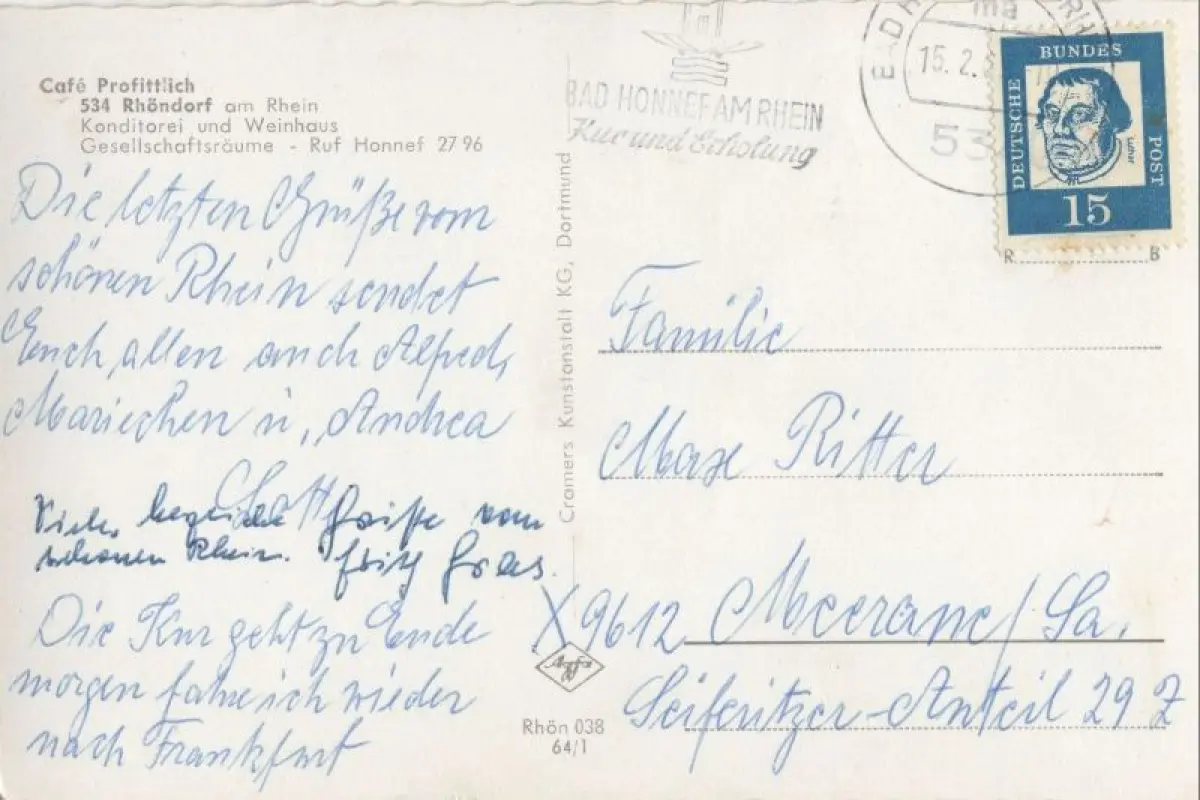 Café Profittlich
534 Rhöndorf am Rhein
Konditorei und Weinhaus
Gesellschaftsräume - Ruf Honnef 27 96
Die letzten Grüße vom
schönen Rhein sendet
Euch allen auch Alfred,
Mariechen u, Andrea
Viele herzliche Grüße vom
schönen Rhein. Fritz
Die Kur geht zu Ende
morgen fahre ich wieder
nach Frankfurt
Cramers Kunstanstalt KG, Dortmund
Agfa
Rhön 038
64/1
BAD HONNEF AM RHEIN
Kur und Erholung
BAD
ma
15. 2.
53
DEUTSCHE BUNDES POST
Luther
15
R B
Familie
Max Ritter
X 9612 Meerane/Sa.
Seiferitzer-Anteil 29 Z